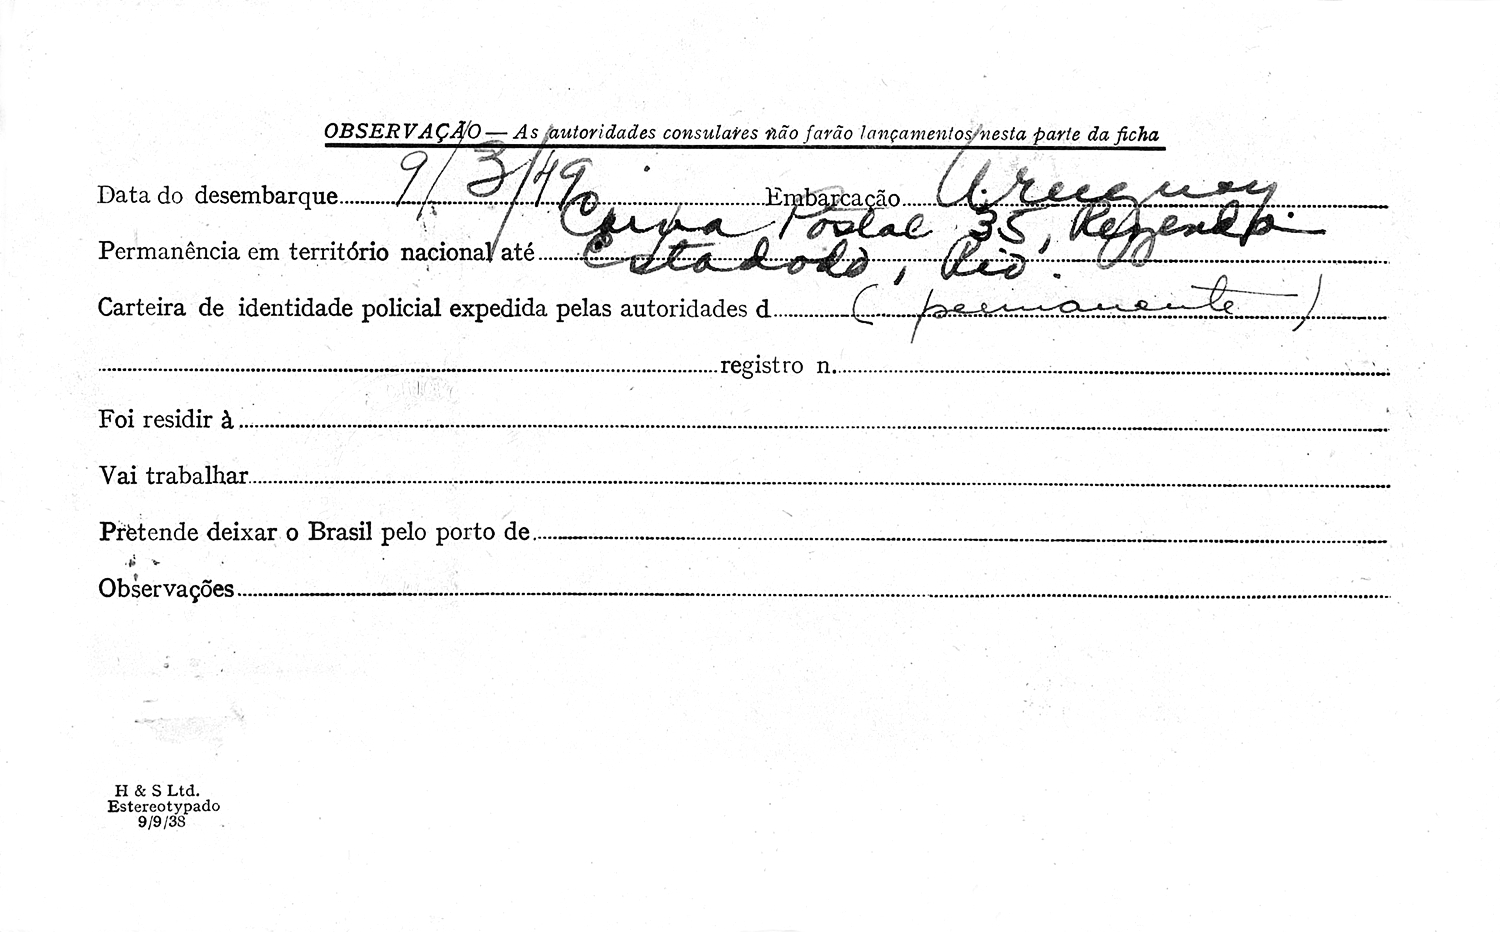 OBSERVAÇÃO — As autoridades consulares não farão lançamentos nesta parte da ficha
Data do desembarque 9/3/49 Embarcação Uruguay
Caixa Postal 35, Rezende
Permanência em território nacional até Estado do, Rio.
Carteira de identidade policial expedida pelas autoridades d (permanente)
registro n.
Foi residir à
Vai trabalhar
Pretende deixar o Brasil pelo porto de
Observações
H & S Ltd.
Estereotypado
9/9/38